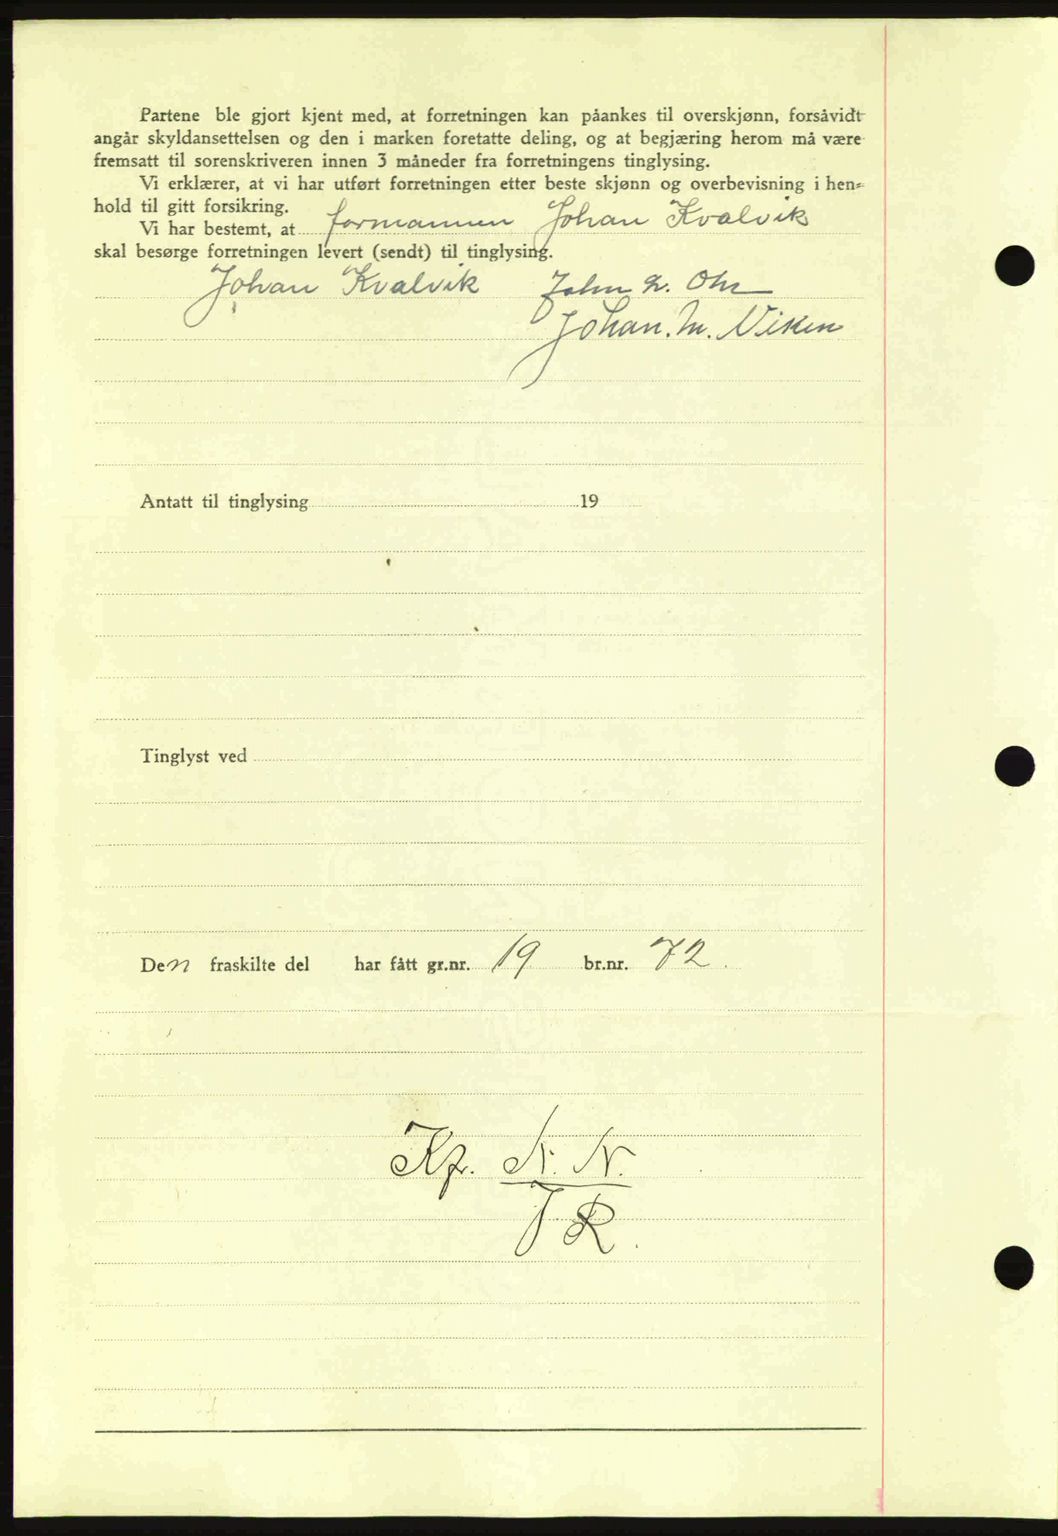 Partene ble gjort kjent med, at forretningen kan påankes til overskjønn, forsåvidt
angår skyldansettelsen og den i marken foretatte deling, og at begjæring herom må være
fremsatt til sorenskriveren innen 3 måneder fra forretningens tinglysing.
Vi erklærer, at vi har utført forretningen etter beste skjønn og overbevisning i hen-
hold til gitt forsikring.
Vi har bestemt, at formannen Johan Kvalvik
skal besørge forretningen levert (sendt) til tinglysing.
Johan Kvalvik John
Johan. M. Viken
Antatt til tinglysing 19
Tinglyst ved
Den fraskilte del har fått gr.nr. 19 br.nr. 72.
Kf. N. N.
J R.